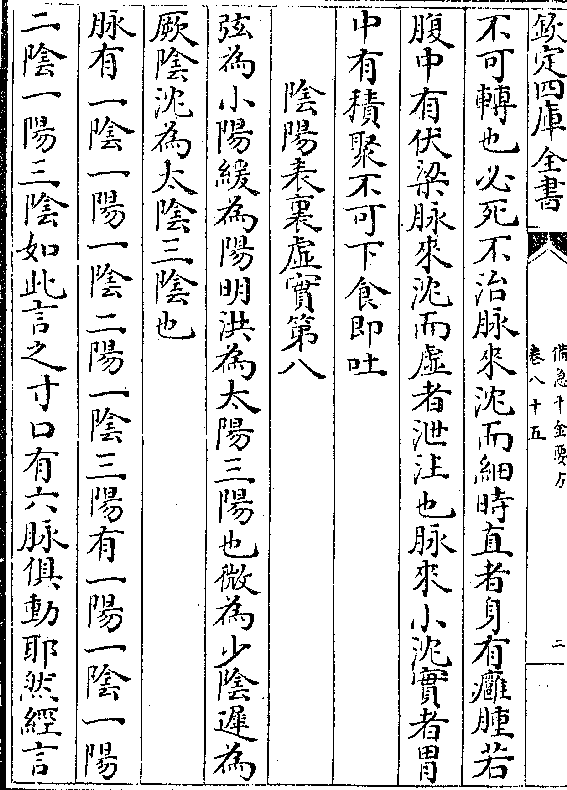 欽定四庫全書
備急千金要方
卷八十五
二
不可轉也必死不治脉來沈而細時直者身有癰腫若
腹中有伏梁脉來沈而虛者泄注也脉來小沈實者胃
中有積聚不可下食即吐
陰陽表裏虛實第八
弦為小陽緩為陽明洪為太陽三陽也微為少陰遲為
厥陰沈為太陰三陰也
脉有一陰一陽一陰二陽一陰三陽有一陽一陰一陽
二陰一陽三陰如此言之寸口有六脉俱動耶然經言